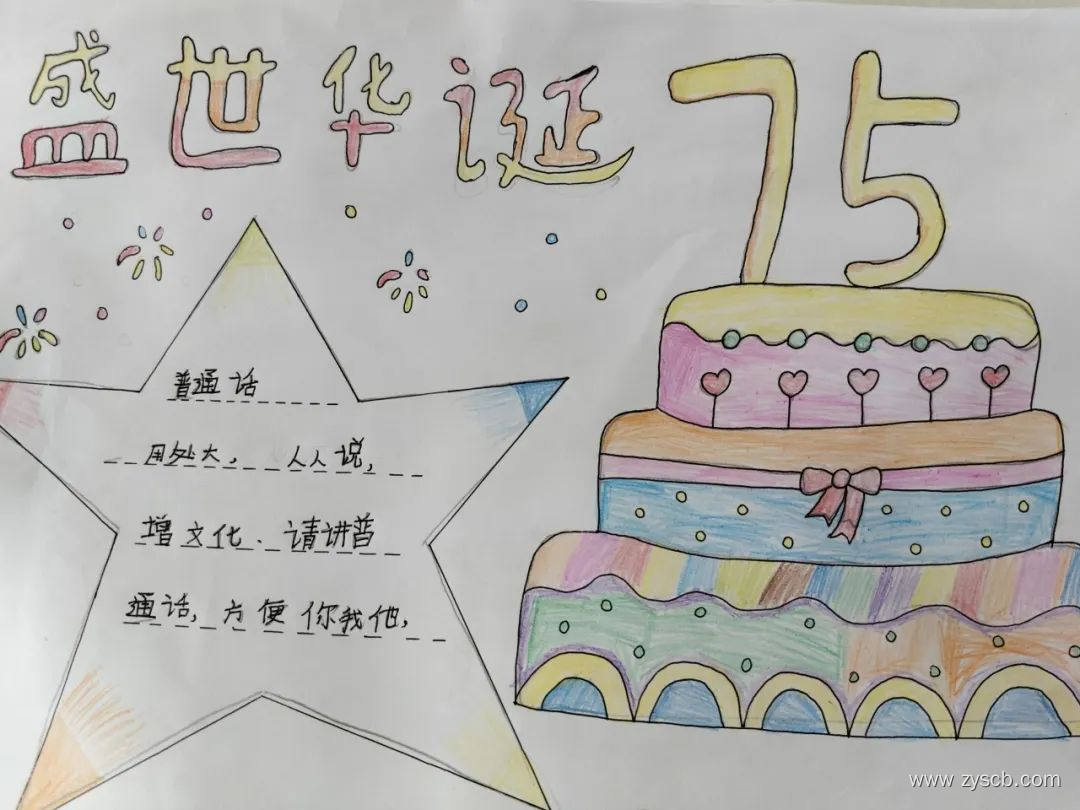 盛世华诞 75
普通话
用处大，人人说，
增文化．请讲普
通话，方便你我他，
www.zyscb.com